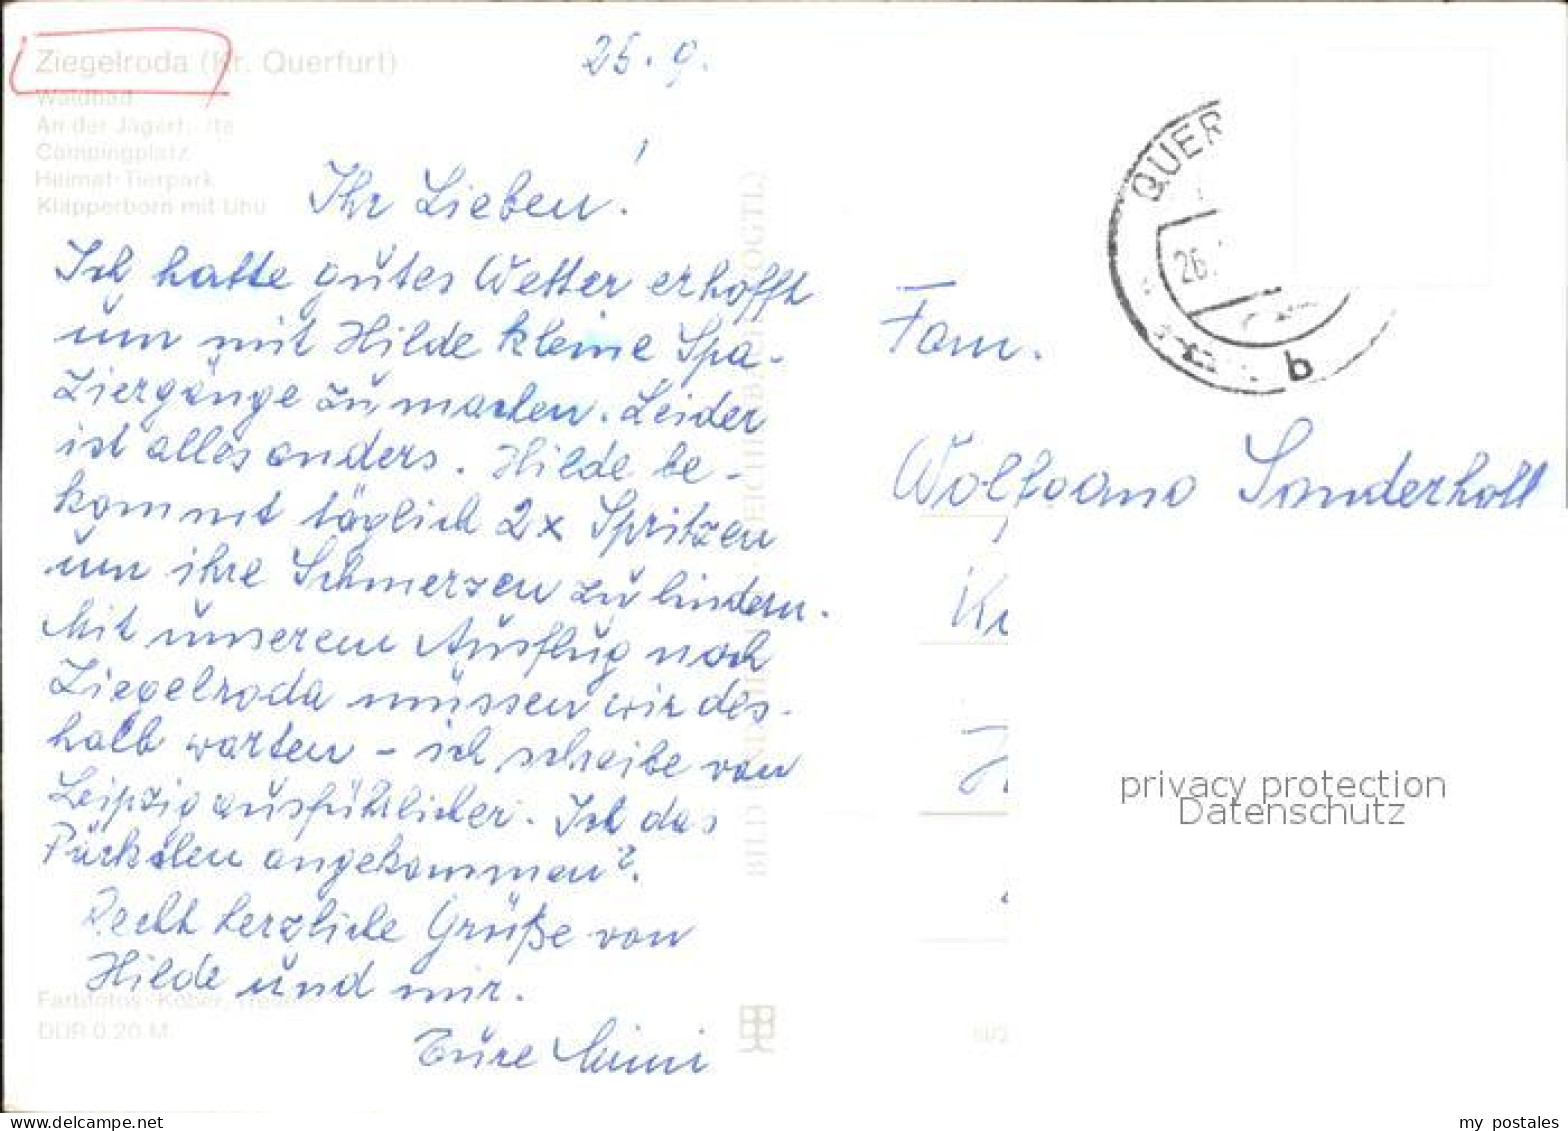 Ziegelroda (Kr. Querfurt)
Waldbad
An der Jägerhütte
Campingplatz
Heimat-Tierpark
Klapperborn mit Uhu
25. 9.
Ihr Lieben!
Ich hatte gutes Wetter erhofft
um mit Hilde kleine Spa-
ziergänge zu machen. Leider
ist alles anders. Hilde be-
kommt täglich 2x Spritzen
um ihre Schmerzen zu lindern.
Mit unserem Ausflug nach
Ziegelroda müssen wir des-
halb warten - ich schreibe von
Leipzig ausführlicher. Ist das
Päckchen angekommen?
Recht herzliche Grüße von
Hilde und mir.
Eure Mimi
Farbfotos: Kober,
DDR 0,20 M
BILD UND HEIMAT REICHENBACH (VOGTL)
QUER
26.
b
Fam.
Wolfgang Sonderhoff
privacy protection
Datenschutz
my postales